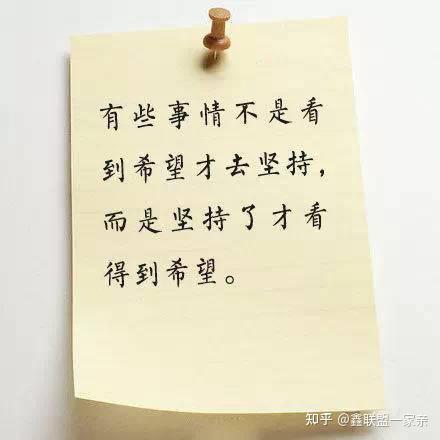 有些事情不是看
到希望才去坚持，
而是坚持了才看
得到希望。
知乎 @鑫联盟一家亲